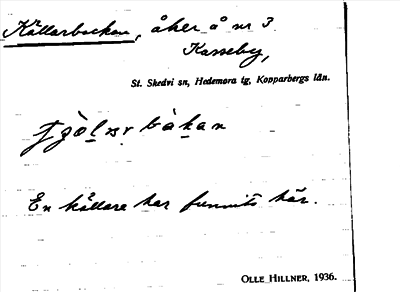 Källarbackan, åker å nr 3
Karseby,
St. Skedvi sn, Hedemora tg, Kopparbergs län.
En källare har funnits här.
OLLE HILLNER, 1936.